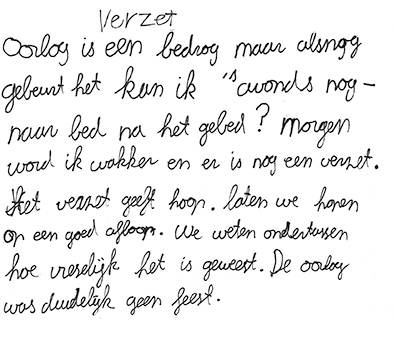 Verzet
Oorlog is een bedrog maar alsnog
gebeurt het kan ik 's avonds nog-
naar bed na het gebed? Morgen
word ik wakker en er is nog een verzet.
Het verzet geeft hoop. laten we hopen
op een goed afloop. We weten ondertussen
hoe vreselijk het is geweest. De oorlog
was duidelijk geen feest.